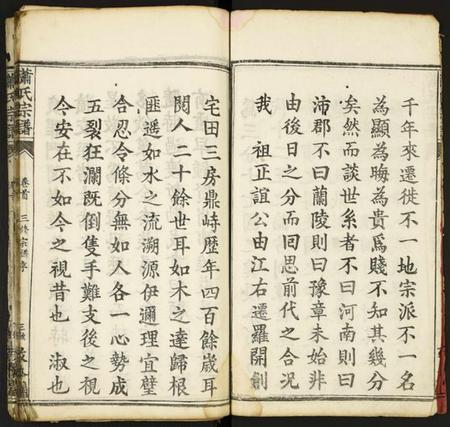 千年來遷徙不一地宗派不一名
為顯為晦為貴為賤不知其幾分
矣然而談世系者不曰河南則曰
沛郡不曰蘭陵則曰豫章未始非
由後日之分而囘思前代之合况
我 祖正誼公由江右遷羅開創
宅田三房鼎峙歷年四百餘歲耳
閱人二十餘世耳如木之達歸根
匪遥如水之流溯源伊邇理宜璧
合忍令條分無如人各一心勢成
五裂狂瀾既倒隻手難支後之視
今安在不如今之視昔也 淑也
蕭氏宗譜
卷首 三修宗譜序